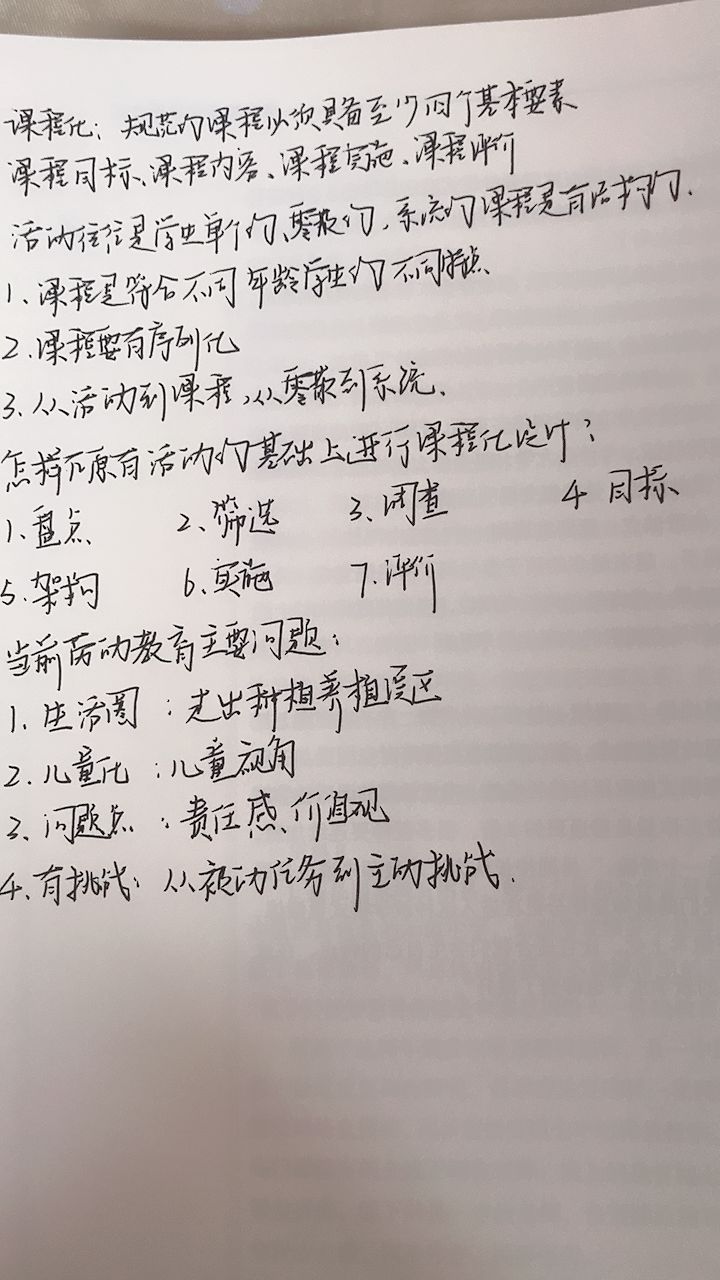 课程化：规范的课程必须具备至少四个基本要素
课程目标、课程内容、课程实施、课程评价
活动往往是学生单个的、零散的，系统的课程是有结构的.
1、课程是符合不同年龄学生的不同特点.
2.课程要有序列化
3.从活动到课程，从零散到系统.
怎样在原有活动的基础上进行课程化设计？
1、盘点 2、筛选 3、调查 4 目标
5.架构 6.实施 7.评价
当前劳动教育主要问题：
1.生活圈：走出种植养殖误区
2.儿童化：儿童视角
3.问题点：责任感、价值观
4.有挑战：从被动任务到主动挑战.